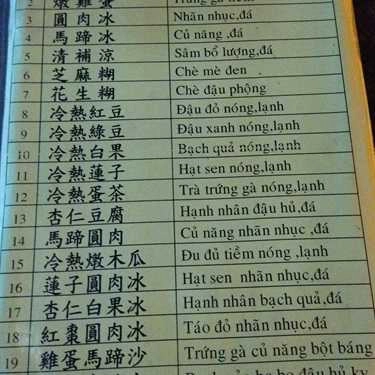 2 燉雞蛋 Trứng gà tiềm
3 圓肉冰 Nhãn nhục,đá
4 馬蹄冰 Củ năng ,đá
5 清補涼 Sâm bổ lượng,đá
6 芝麻糊 Chè mè đen
7 花生糊 Chè đậu phộng
8 冷熱紅豆 Đậu đỏ nóng,lạnh
9 冷熱綠豆 Đậu xanh nóng,lạnh
10 冷熱白果 Bạch quả nóng,lạnh
11 冷熱蓮子 Hạt sen nóng,lạnh
12 冷熱蛋茶 Trà trứng gà nóng,lạnh
13 杏仁豆腐 Hạnh nhân đậu hủ,đá
14 馬蹄圓肉 Củ năng nhãn nhục,đá
15 冷熱燉木瓜 Đu đủ tiềm nóng ,lạnh
16 蓮子圓肉冰 Hạt sen nhãn nhục,đá
17 杏仁白果冰 Hanh nhân bạch quả,đá
18 紅棗圓肉冰 Táo đỏ nhãn nhục,đá
19 雞蛋馬蹄沙 Trứng gà củ năng bột báng